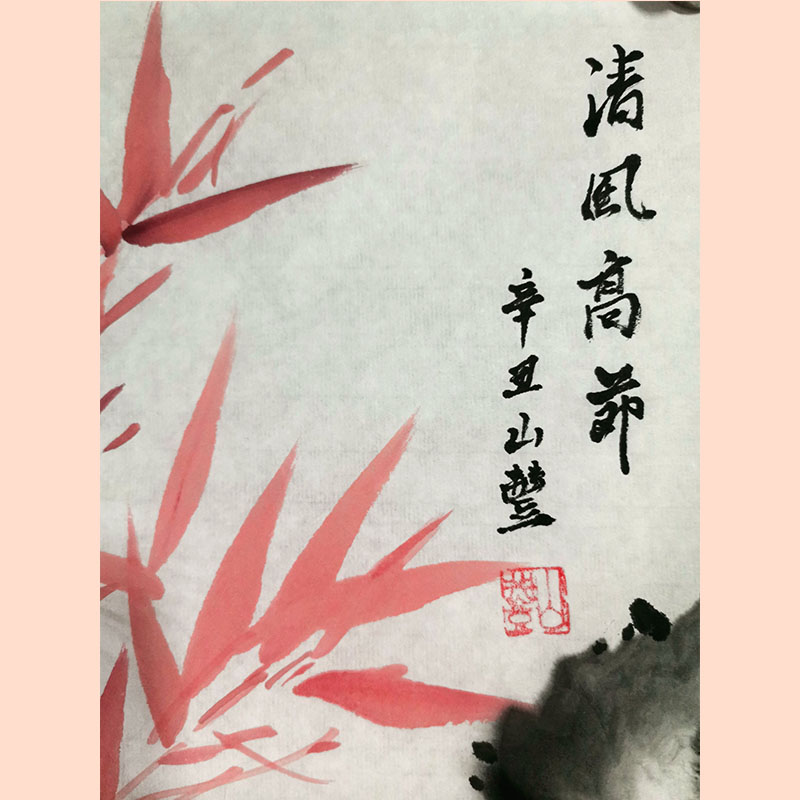 清風高節
辛丑山豐